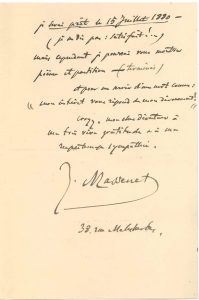 je serai prêt le 15 Juillet 1880 —
(je ne dis pas : satisfait ! —)
mais cependant je pourrai vous montrer
pièce et partition (terminées)
et pour un moins d'un mot connu :
"mon intérêt vous répond de mon dévouement"
Croyez, mon cher directeur à
ma très vive gratitude & à ma
respectueuse sympathie.
J. Massenet
38, rue Malesherbes,